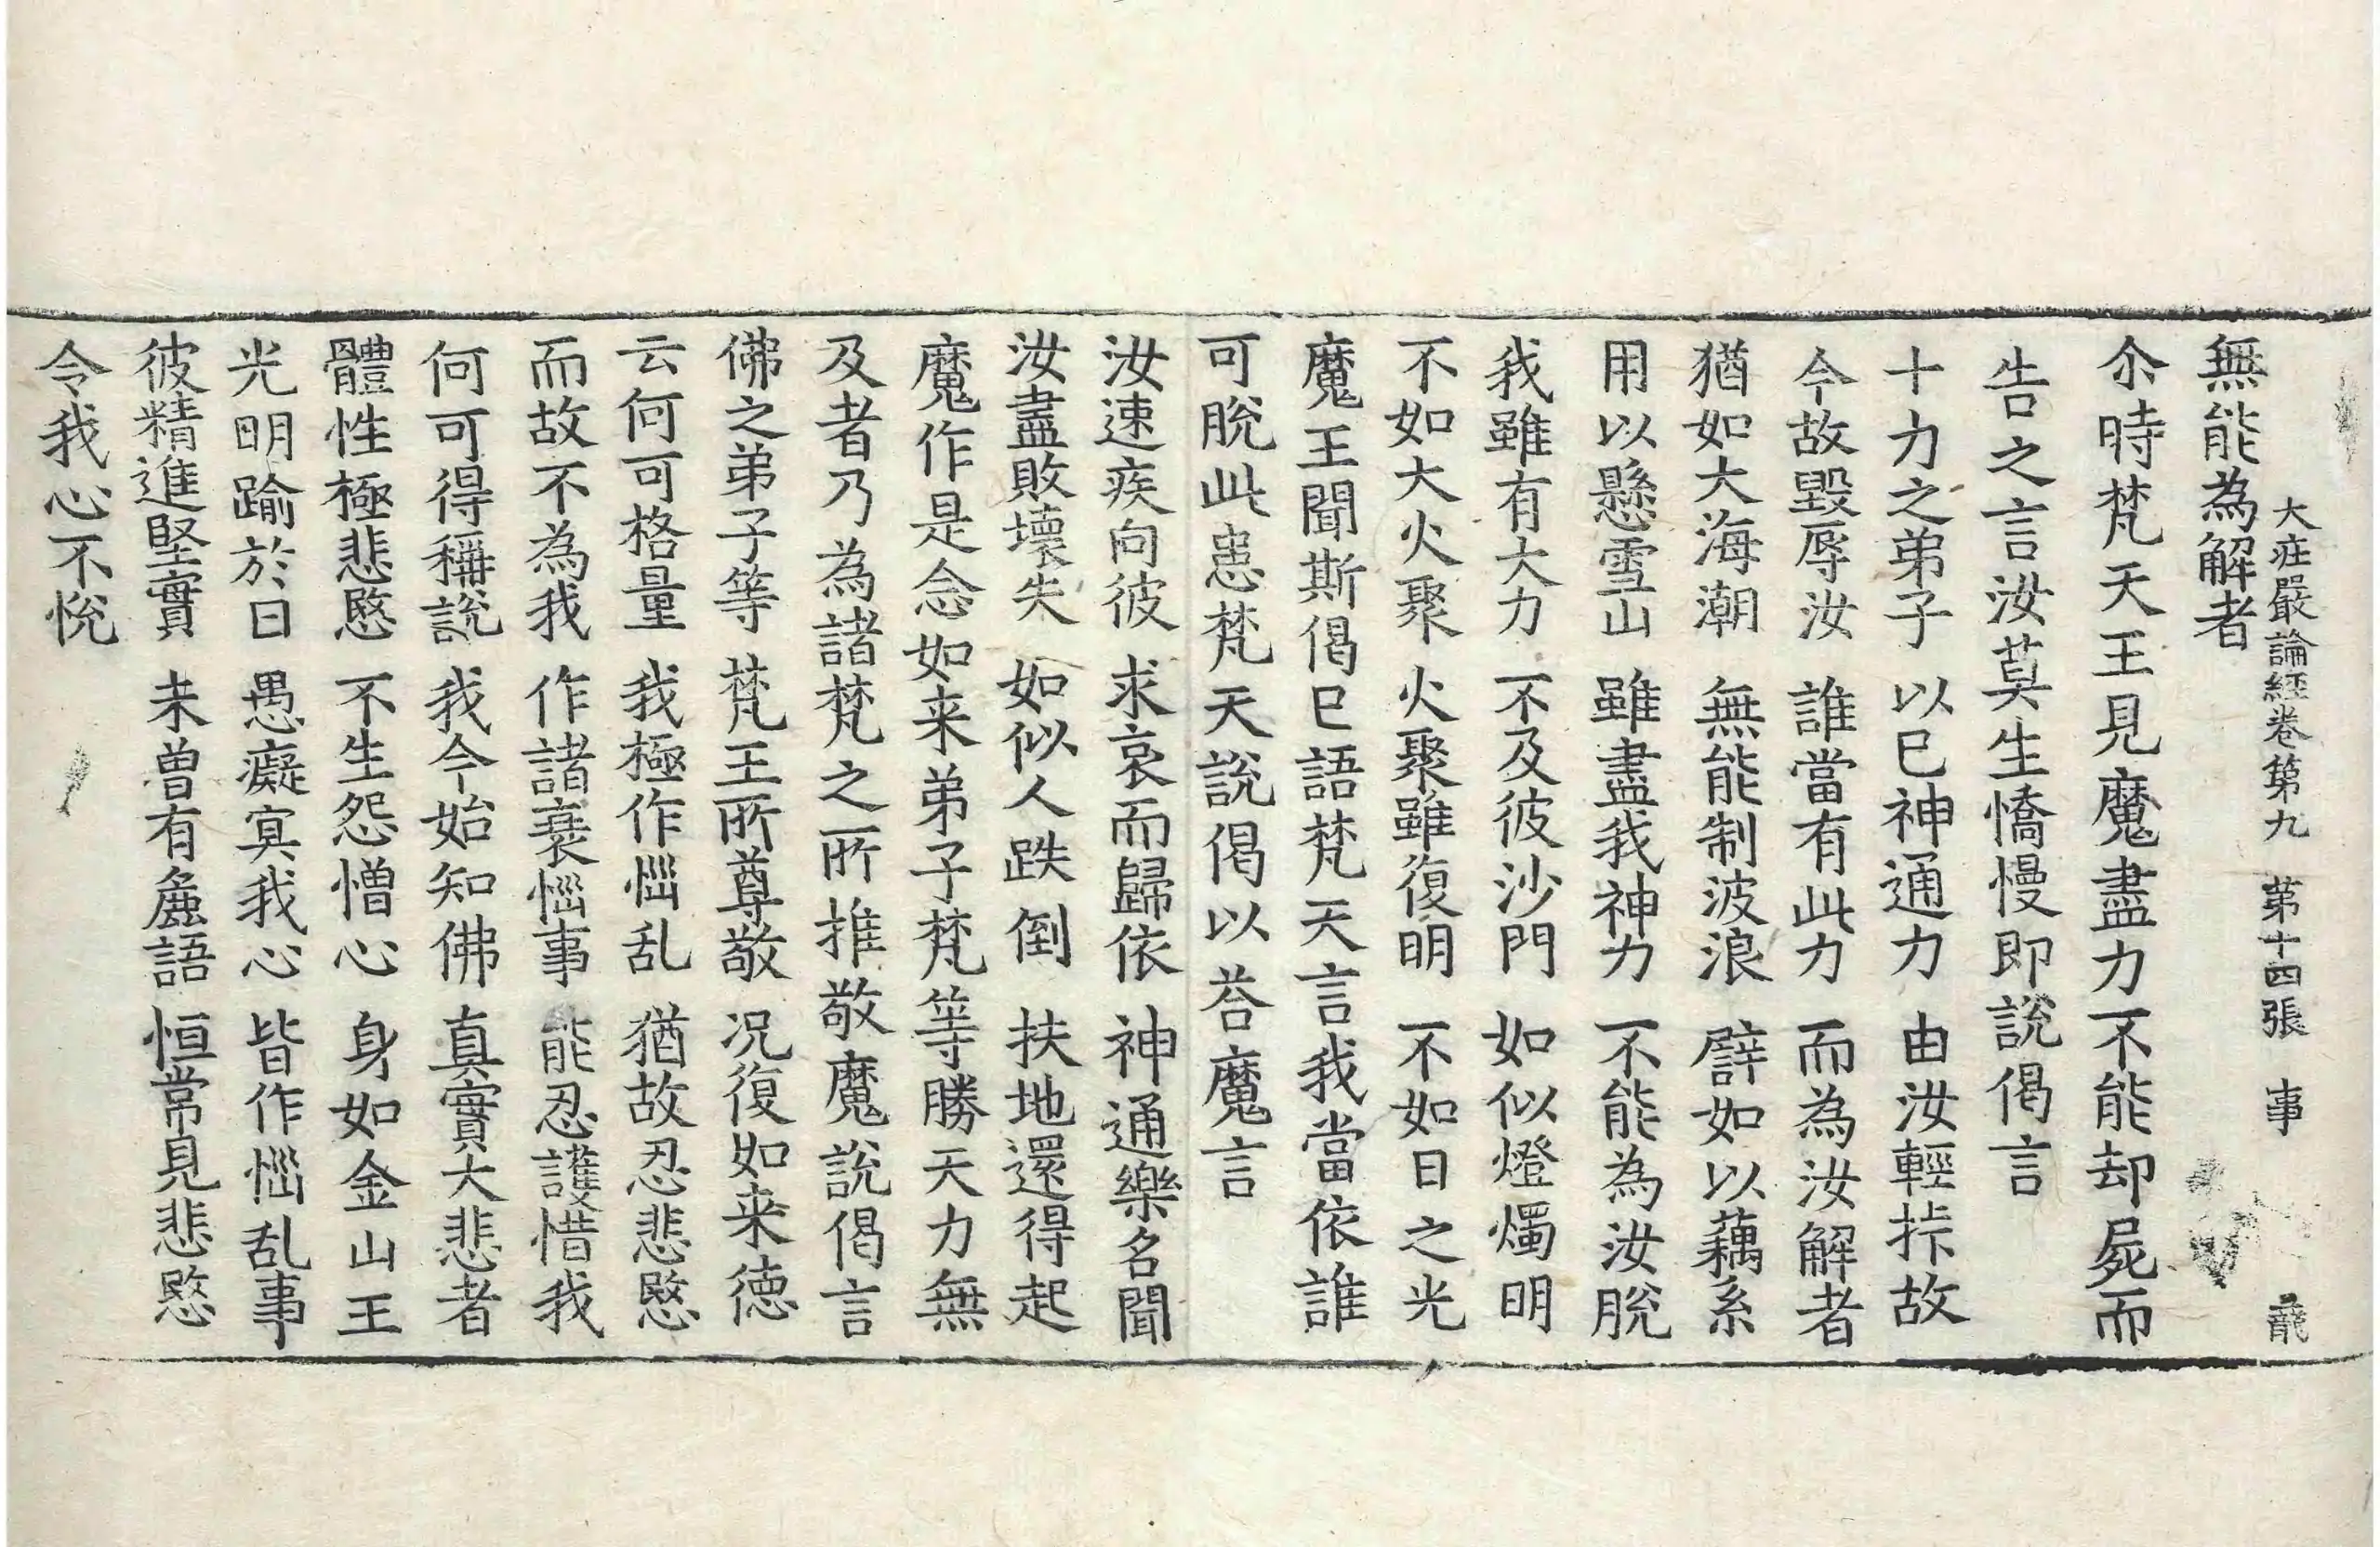 大莊嚴論經卷第九　第十四張　事
無能為解者
尒時梵天王見魔盡力不能却屍而
告之言汝莫生憍慢即說偈言
十力之弟子　以巳神通力　由汝輕𢱢故
今故毀辱汝　誰當有此力　而為汝解者
猶如大海潮　無能制波浪　譬如以藕系
用以懸雪山　雖盡我神力　不能為汝脫
我雖有大力　不及彼沙門　如似燈燭明
不如大火聚　火聚雖復明　不如日之光
魔王聞斯偈巳語梵天言我當依誰
可脫此患梵天說偈以荅魔言
汝速疾向彼　求哀而歸依　神通樂名聞
汝盡敗壞失　如似人跌倒　扶地還得起
魔作是念如来弟子梵等勝天力無
及者乃為諸梵之所推敬魔說偈言
佛之弟子等　梵王所尊敬　况復如来德
云何可格量　我極作惱乱　猶故忍悲愍
而故不為我　作諸衰惱事　能忍護惜我
何可得稱說　我今始知佛　真實大悲者
體性極悲愍　不生怨憎心　身如金山王
光明踰於日　愚癡冥我心　皆作惱乱事
彼精進堅實　未曾有麁語　恒常見悲愍
令我心不悅